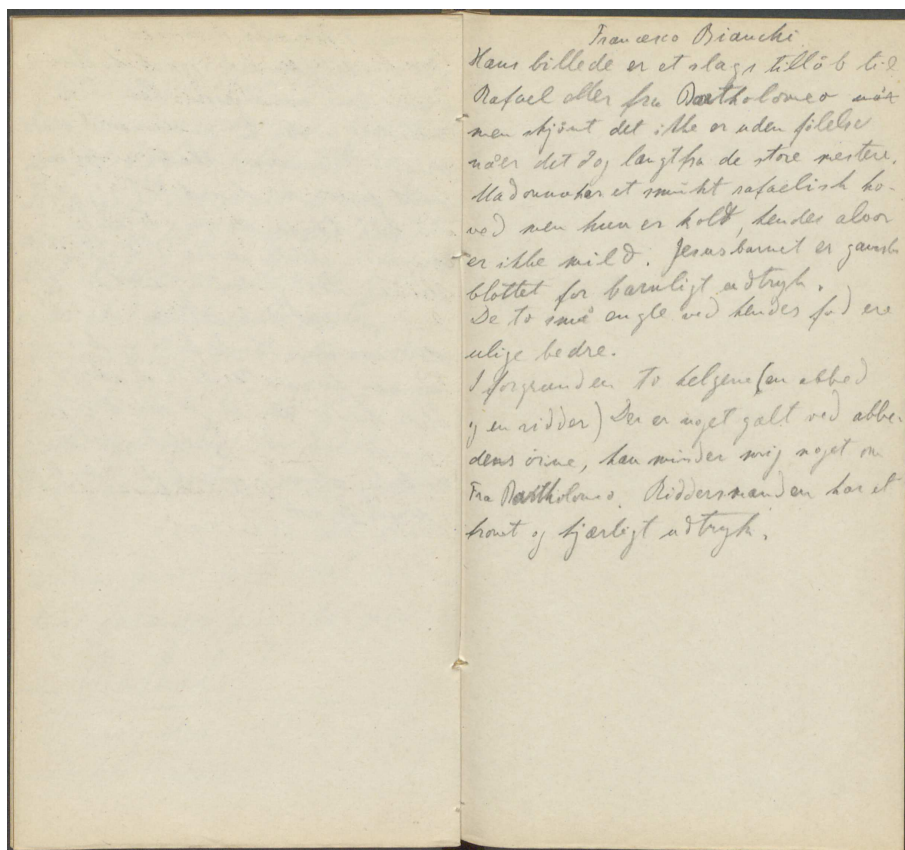 Francesco Bianchi
Hans billede er et slags tillöb til
Rafael eller fra Bartholomeo
men skjönt det ikke er uden fölelse
nåer det dog langt fra de store mestere.
Madonna har et smukt rafaelisk ho-
ved men hun er kold, hendes alvor
er ikke mild. Jesusbarnet er ganske
blottet for barnligt udtryk.
De to små engle ved hendes fod ere
ulige bedre.
I forgrunden to helgene (en abbed
og en ridder) Der er noget galt ved abbe-
dens öine, han minder mig noget om
Fra Bartholomeo. Riddersmanden har et
fromt og kjærligt udtryk.